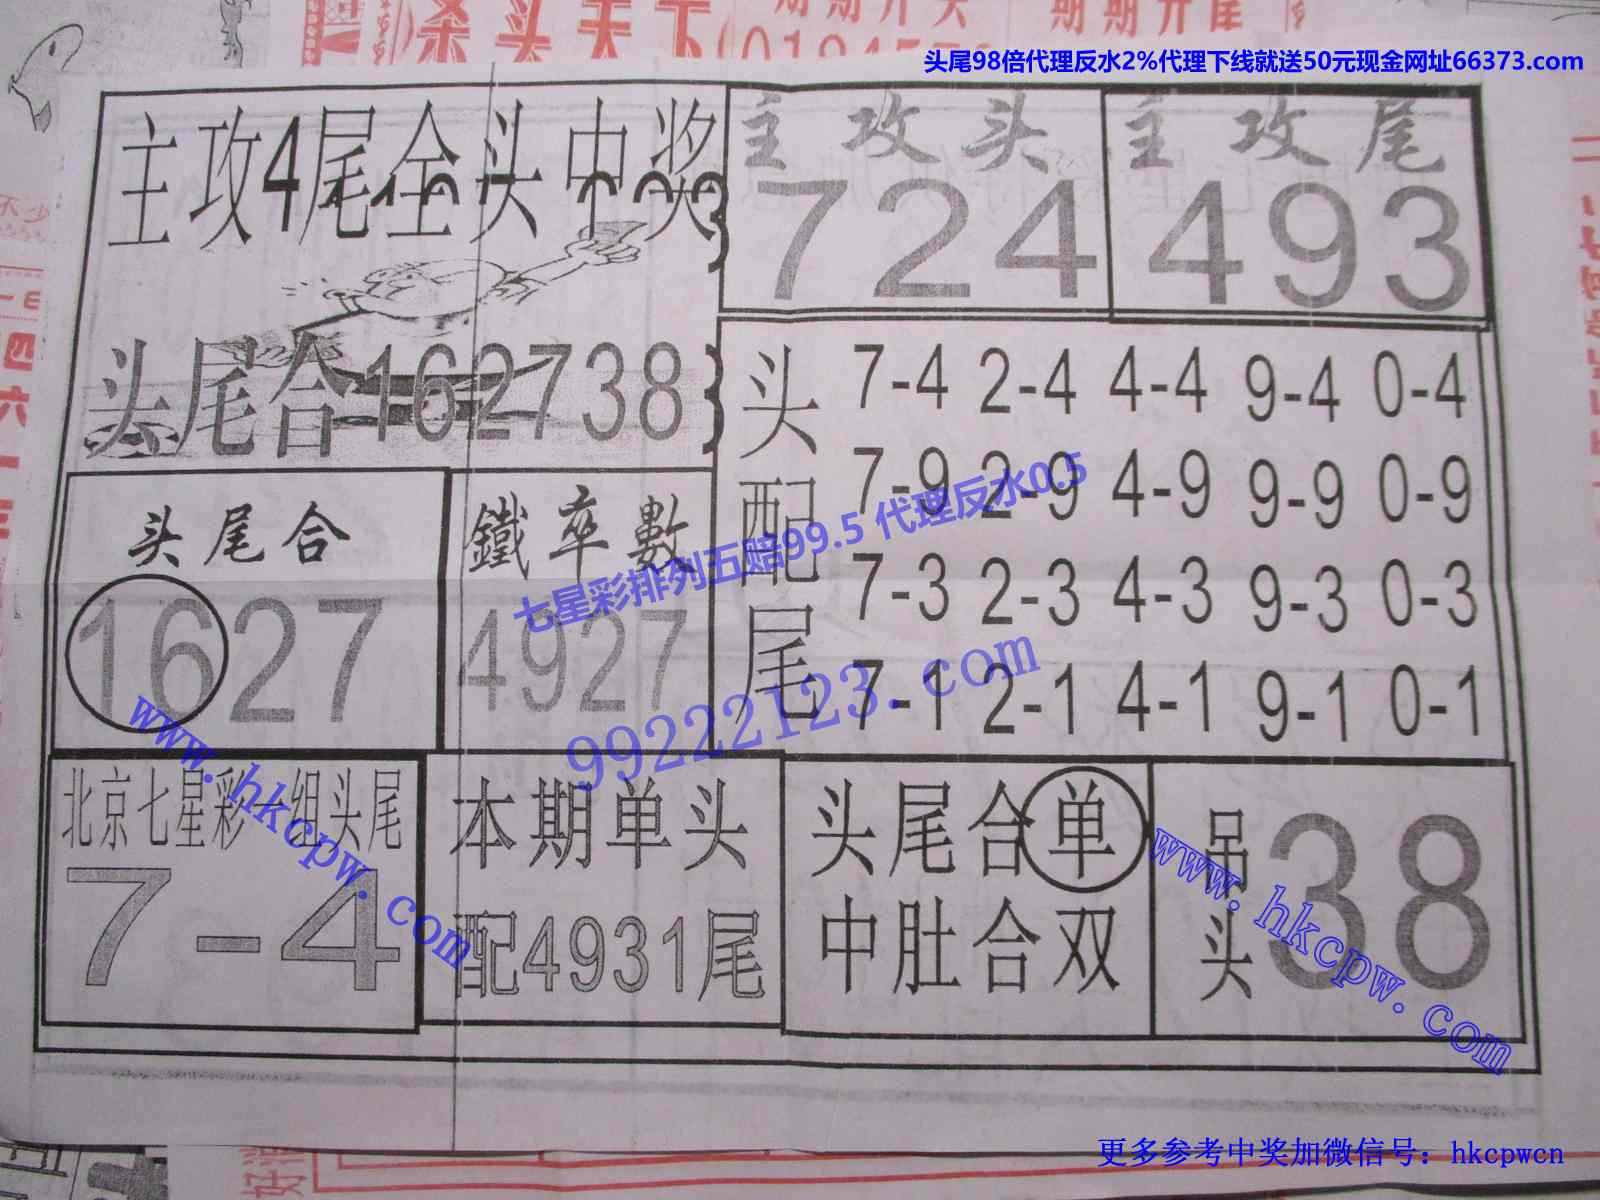 杀头天下
期期开头
期期开尾
头尾98倍代理反水2%代理下线就送50元现金网址66373.com
主攻4尾全头中奖
头尾合162738
主攻头
724
主攻尾
493
头配尾
7-4 2-4 4-4 9-4 0-4
7-9 2-9 4-9 9-9 0-9
7-3 2-3 4-3 9-3 0-3
7-1 2-1 4-1 9-1 0-1
头尾合
1627
鐵率數
4927
七星彩排列五赔99.5 代理反水0.5
99222123.com
北京七星彩一组头尾
7-4
www.hkcpw.com
本期单头
配4931尾
头尾合单
中肚合双
吊头
38
www.hkcpw.com
更多参考中奖加微信号：hkcpwcn